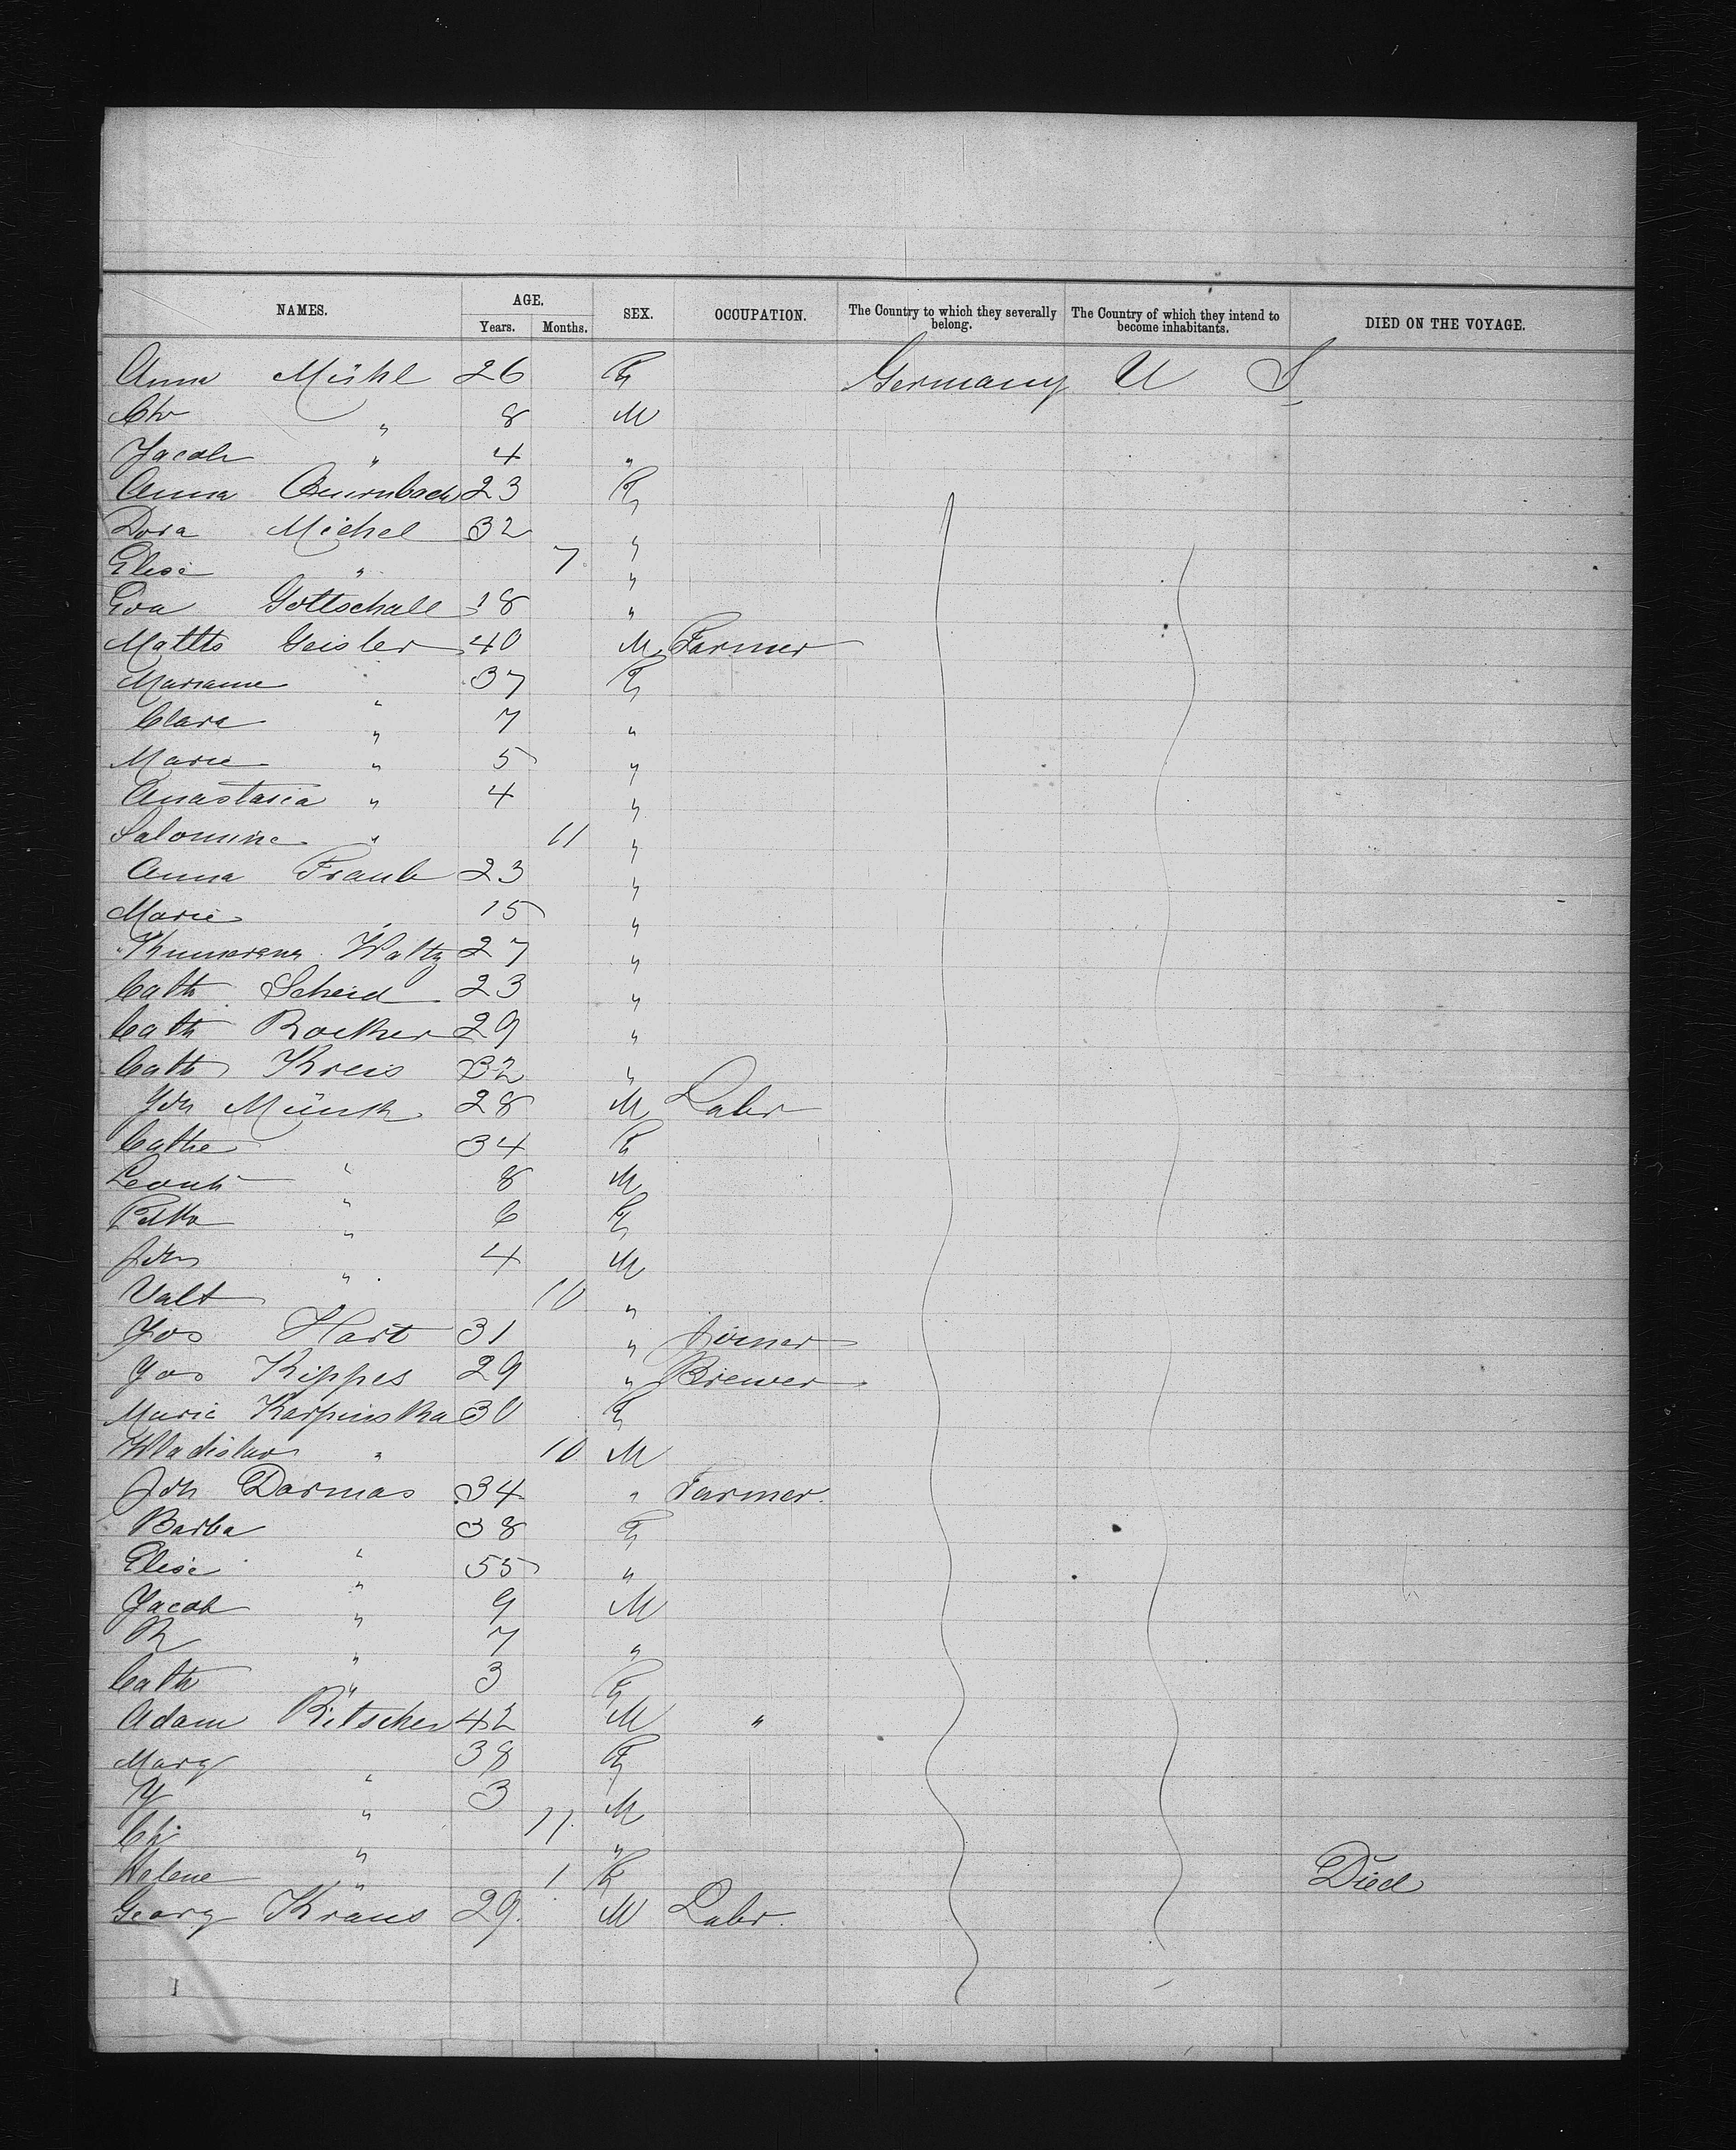 NAMES. AGE. SEX. OCCUPATION. The Country to which they severally belong. The Country of which they intend to become inhabitants. DIED ON THE VOYAGE.
Years. Months.
Anna Mühl 26 F Germany U S
Chr " 8 M
Jacob " 4 "
Anna 23 F
Dora Michel 32 "
Elise " 7 "
Eva Gottschall 18 "
Matths Geisler 40 M Farmer
Marianne " 37 F
Clara " 7 "
Marie " 5 "
Anastasia " 4 "
Salomine " 11 "
Anna Traub 23 "
Marie " 15 "
Waltz 27 "
Cath Scheid 23 "
Cath Rocker 29 "
Cath Kreis 32 "
Joh Münch 28 M Labr
Cathe " 34 F
Leonh " 8 M
" 6 F
Joh " 4 M
Valt " 10 "
Jos Hart 31 " Joiner
Jos Kippes 29 " Brewer
Marie Karpinska 30 F
Wladislav " 10 M
Joh Darmas 34 " Farmer
Barba " 38 F
Elise " 55 "
Jacob " 9 M
R " 7 "
Cath " 3 F
Adam Ritscher 42 M "
Marg " 38 F
Y " 3 M
Ch " 11 "
Helene " 1 F Died
Georg Kraus 29 M Labr